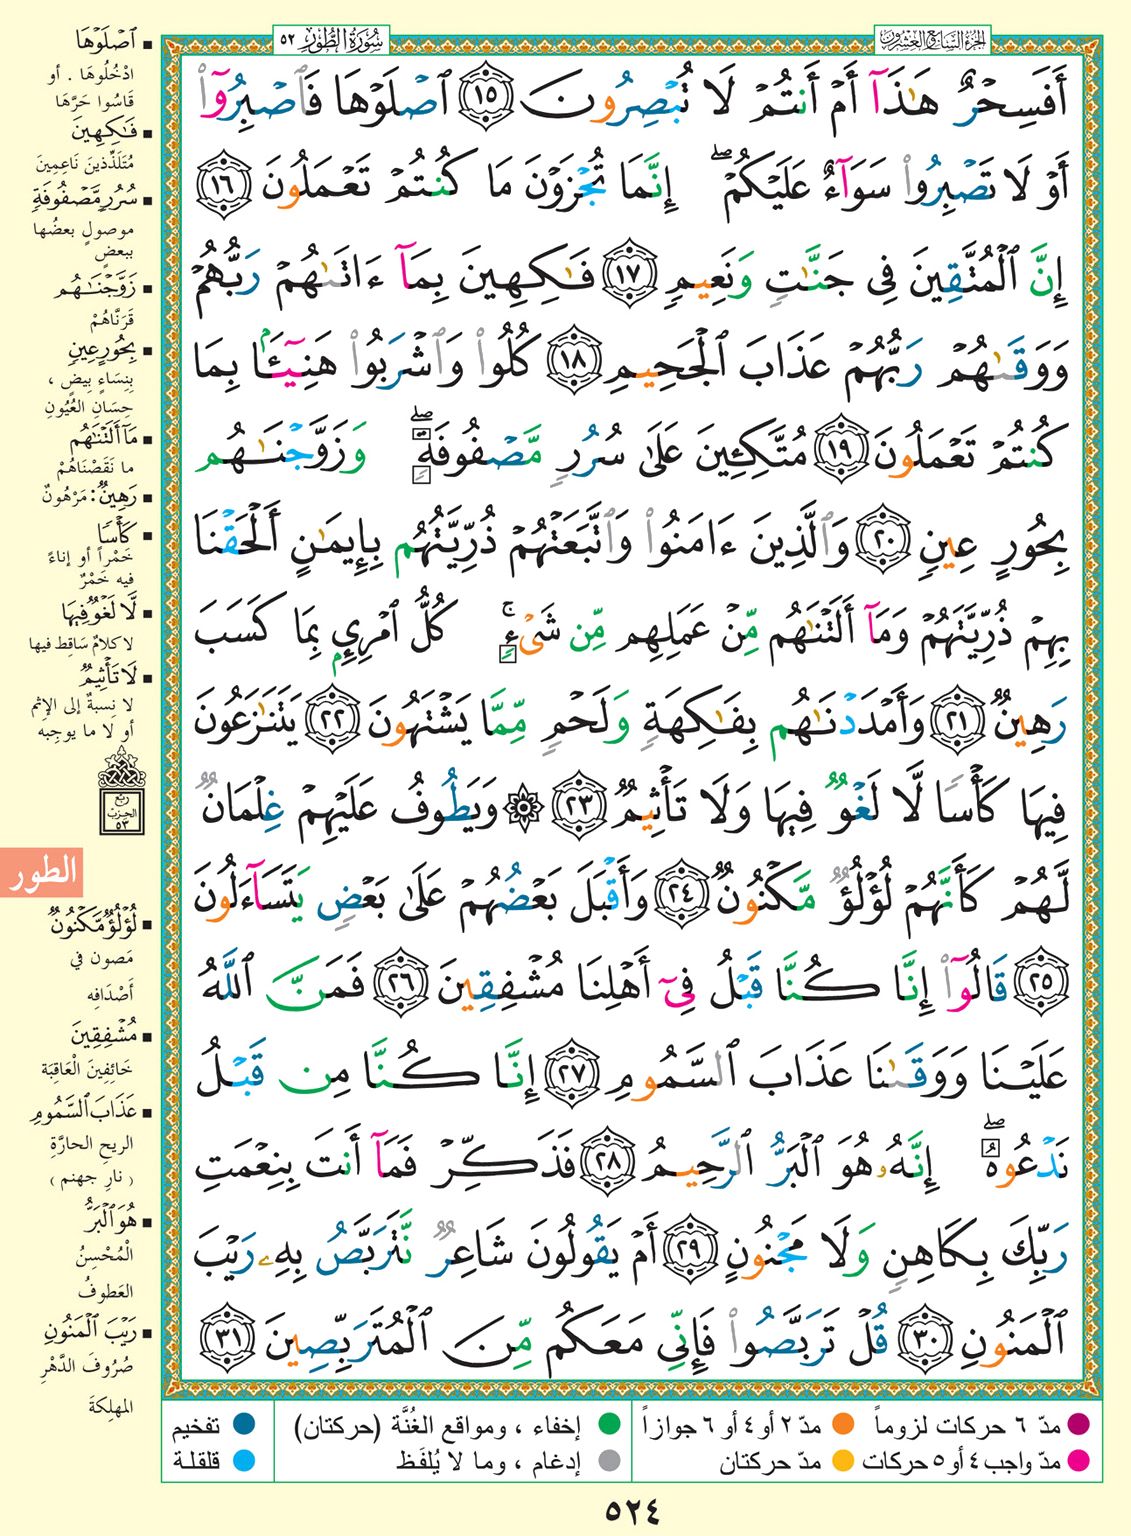 الجزء السابع والعشرون
سُورَةُ الطُّورِ ٥٢
أَفَسِحْرٌ هَٰذَآ أَمْ أَنتُمْ لَا تُبْصِرُونَ ١٥ ٱصْلَوْهَا فَٱصْبِرُوٓا۟
أَوْ لَا تَصْبِرُوا۟ سَوَآءٌ عَلَيْكُمْ ۖ إِنَّمَا تُجْزَوْنَ مَا كُنتُمْ تَعْمَلُونَ ١٦
إِنَّ ٱلْمُتَّقِينَ فِى جَنَّٰتٍ وَنَعِيمٍ ١٧ فَٰكِهِينَ بِمَآ ءَاتَىٰهُمْ رَبُّهُمْ
وَوَقَىٰهُمْ رَبُّهُمْ عَذَابَ ٱلْجَحِيمِ ١٨ كُلُوا۟ وَٱشْرَبُوا۟ هَنِيٓـًٔۢا بِمَا
كُنتُمْ تَعْمَلُونَ ١٩ مُتَّكِـِٔينَ عَلَىٰ سُرُرٍ مَّصْفُوفَةٍ ۖ وَزَوَّجْنَٰهُم
بِحُورٍ عِينٍ ٢٠ وَٱلَّذِينَ ءَامَنُوا۟ وَٱتَّبَعَتْهُمْ ذُرِّيَّتُهُم بِإِيمَٰنٍ أَلْحَقْنَا
بِهِمْ ذُرِّيَّتَهُمْ وَمَآ أَلَتْنَٰهُم مِّنْ عَمَلِهِم مِّن شَىْءٍ ۚ كُلُّ ٱمْرِئٍۭ بِمَا كَسَبَ
رَهِينٌ ٢١ وَأَمْدَدْنَٰهُم بِفَٰكِهَةٍ وَلَحْمٍ مِّمَّا يَشْتَهُونَ ٢٢ يَتَنَٰزَعُونَ
فِيهَا كَأْسًا لَّا لَغْوٌ فِيهَا وَلَا تَأْثِيمٌ ٢٣ ۞ وَيَطُوفُ عَلَيْهِمْ غِلْمَانٌ
لَّهُمْ كَأَنَّهُمْ لُؤْلُؤٌ مَّكْنُونٌ ٢٤ وَأَقْبَلَ بَعْضُهُمْ عَلَىٰ بَعْضٍ يَتَسَآءَلُونَ
٢٥ قَالُوٓا۟ إِنَّا كُنَّا قَبْلُ فِىٓ أَهْلِنَا مُشْفِقِينَ ٢٦ فَمَنَّ ٱللَّهُ
عَلَيْنَا وَوَقَىٰنَا عَذَابَ ٱلسَّمُومِ ٢٧ إِنَّا كُنَّا مِن قَبْلُ
نَدْعُوهُ ۖ إِنَّهُۥ هُوَ ٱلْبَرُّ ٱلرَّحِيمُ ٢٨ فَذَكِّرْ فَمَآ أَنتَ بِنِعْمَتِ
رَبِّكَ بِكَاهِنٍ وَلَا مَجْنُونٍ ٢٩ أَمْ يَقُولُونَ شَاعِرٌ نَّتَرَبَّصُ بِهِۦ رَيْبَ
ٱلْمَنُونِ ٣٠ قُلْ تَرَبَّصُوا۟ فَإِنِّى مَعَكُم مِّنَ ٱلْمُتَرَبِّصِينَ ٣١
ٱصْلَوْهَا
ادْخُلُوهَا . أو
قَاسُوا حَرَّهَا
فَٰكِهِينَ
مُتَلَذِّذينَ نَاعِمِينَ
سُرُرٍ مَّصْفُوفَةٍ
موصولٍ بعضُها
ببعضٍ
زَوَّجْنَٰهُم
قَرَنَّاهُمْ
بِحُورٍ عِينٍ
بِنِسَاءٍ بِيضٍ ،
حِسَانِ العُيُونِ
مَآ أَلَتْنَٰهُم
ما نَقَصْنَاهُمْ
رَهِينٌ: مَرْهُونٌ
كَأْسًا
خَمْراً أو إناءً
فيه خَمْرٌ
لَّا لَغْوٌ فِيهَا
لا كلامٌ سَاقِط فيها
لَا تَأْثِيمٌ
لا نِسبةٌ إلى الإثم
أو لا ما يوجِبه
ربع
الحزب
٥٣
الطور
لُؤْلُؤٌ مَّكْنُونٌ
مَصون في
أَصْدَافِه
مُشْفِقِينَ
خَائِفِينَ الْعَاقِبَة
عَذَابَ ٱلسَّمُومِ
الريحِ الحارَّةِ
( نارِ جهنم )
هُوَ ٱلْبَرُّ
الْمُحْسِنُ
العَطوفُ
رَيْبَ ٱلْمَنُونِ
صُرُوفَ الدَّهْرِ
المهلِكةَ
مدّ ٦ حركات لزوماً
مدّ ٢ أو ٤ أو ٦ جوازاً
إخفاء ، ومواقع الغُنَّة (حركتان)
تفخيم
مدّ واجب ٤ أو ٥ حركات
مدّ حركتان
إدغام ، وما لا يُلفَظ
قلقلة
٥٢٤